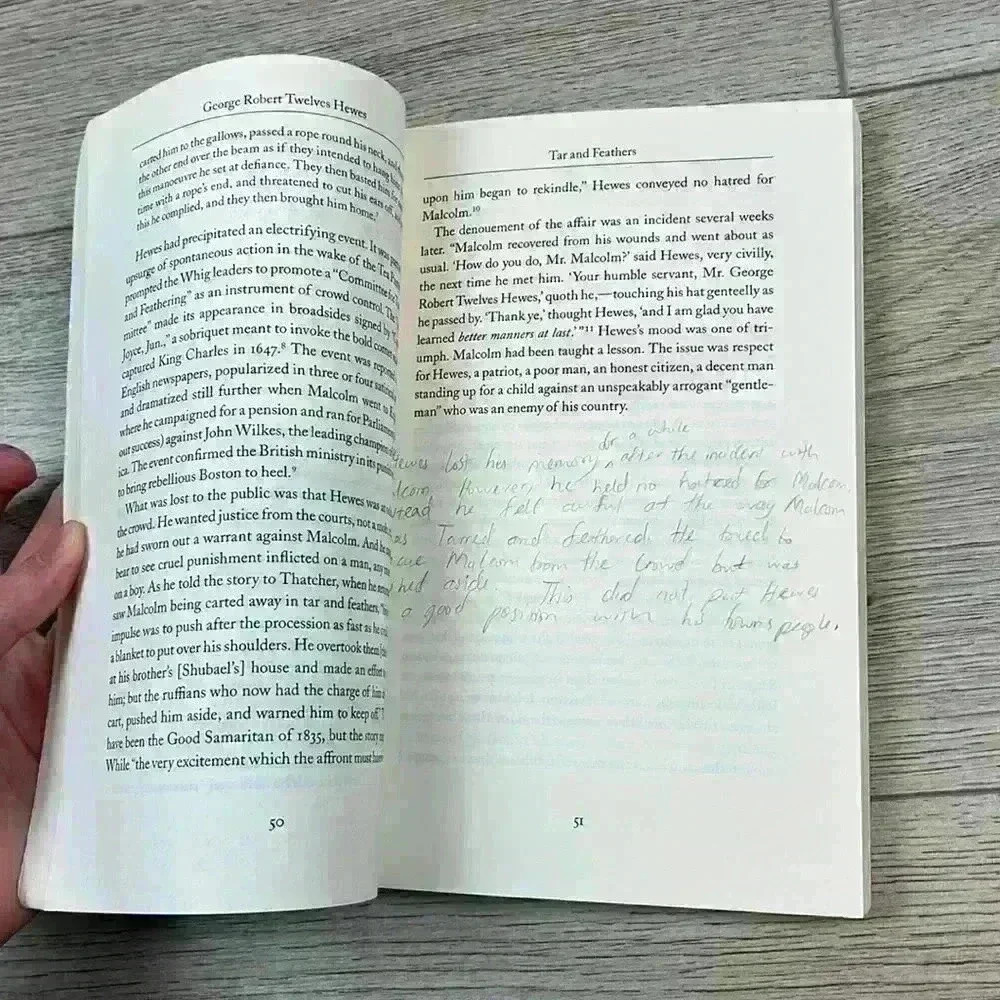 George Robert Twelves Hewes
carted him to the gallows, passed a rope round his neck, and
the other end over the beam as if they intended to hang
this manoeuvre he set at defiance. They then basted him for
time with a rope's end, and threatened to cut his ears off,
this he complied, and they then brought him home.⁷
Hewes had precipitated an electrifying event. It was
upsurge of spontaneous action in the wake of the Tea
prompted the Whig leaders to promote a "Committee for
and Feathering" as an instrument of crowd control. The
mittee" made its appearance in broadsides signed by
Joyce, Jun.," a sobriquet meant to invoke the bold
captured King Charles in 1647.⁸ The event was
English newspapers, popularized in three or four
and dramatized still further when Malcolm went to
where he campaigned for a pension and ran for Parliament
out success) against John Wilkes, the leading champion
ica. The event confirmed the British ministry in its
to bring rebellious Boston to heel.⁹
What was lost to the public was that Hewes was
the crowd. He wanted justice from the courts, not a
he had sworn out a warrant against Malcolm. And he
bear to see cruel punishment inflicted on a man, any
on a boy. As he told the story to Thatcher, when he
saw Malcolm being carted away in tar and feathers,
impulse was to push after the procession as fast as he
a blanket to put over his shoulders. He overtook them
at his brother's [Shubael's] house and made an effort
him; but the ruffians who now had the charge of him
cart, pushed him aside, and warned him to keep off."
have been the Good Samaritan of 1835, but the story
While "the very excitement which the affront must have
50
Tar and Feathers
upon him began to rekindle," Hewes conveyed no hatred for
Malcolm.¹⁰
The denouement of the affair was an incident several weeks
later. "Malcolm recovered from his wounds and went about as
usual. 'How do you do, Mr. Malcolm?' said Hewes, very civilly,
the next time he met him. 'Your humble servant, Mr. George
Robert Twelves Hewes,' quoth he,—touching his hat genteelly as
he passed by. 'Thank ye,' thought Hewes, 'and I am glad you have
learned better manners at last.'"¹¹ Hewes's mood was one of tri-
umph. Malcolm had been taught a lesson. The issue was respect
for Hewes, a patriot, a poor man, an honest citizen, a decent man
standing up for a child against an unspeakably arrogant "gentle-
man" who was an enemy of his country.
for a while
Hewes lost his memory ^ after the incident with
However, he held no hatred for Malcom
he felt awful at the way Malcom
Tarred and feathered. He tried to
Malcom from the crowd but was
aside. This did not put Hewes
a good position with his towns people.
51